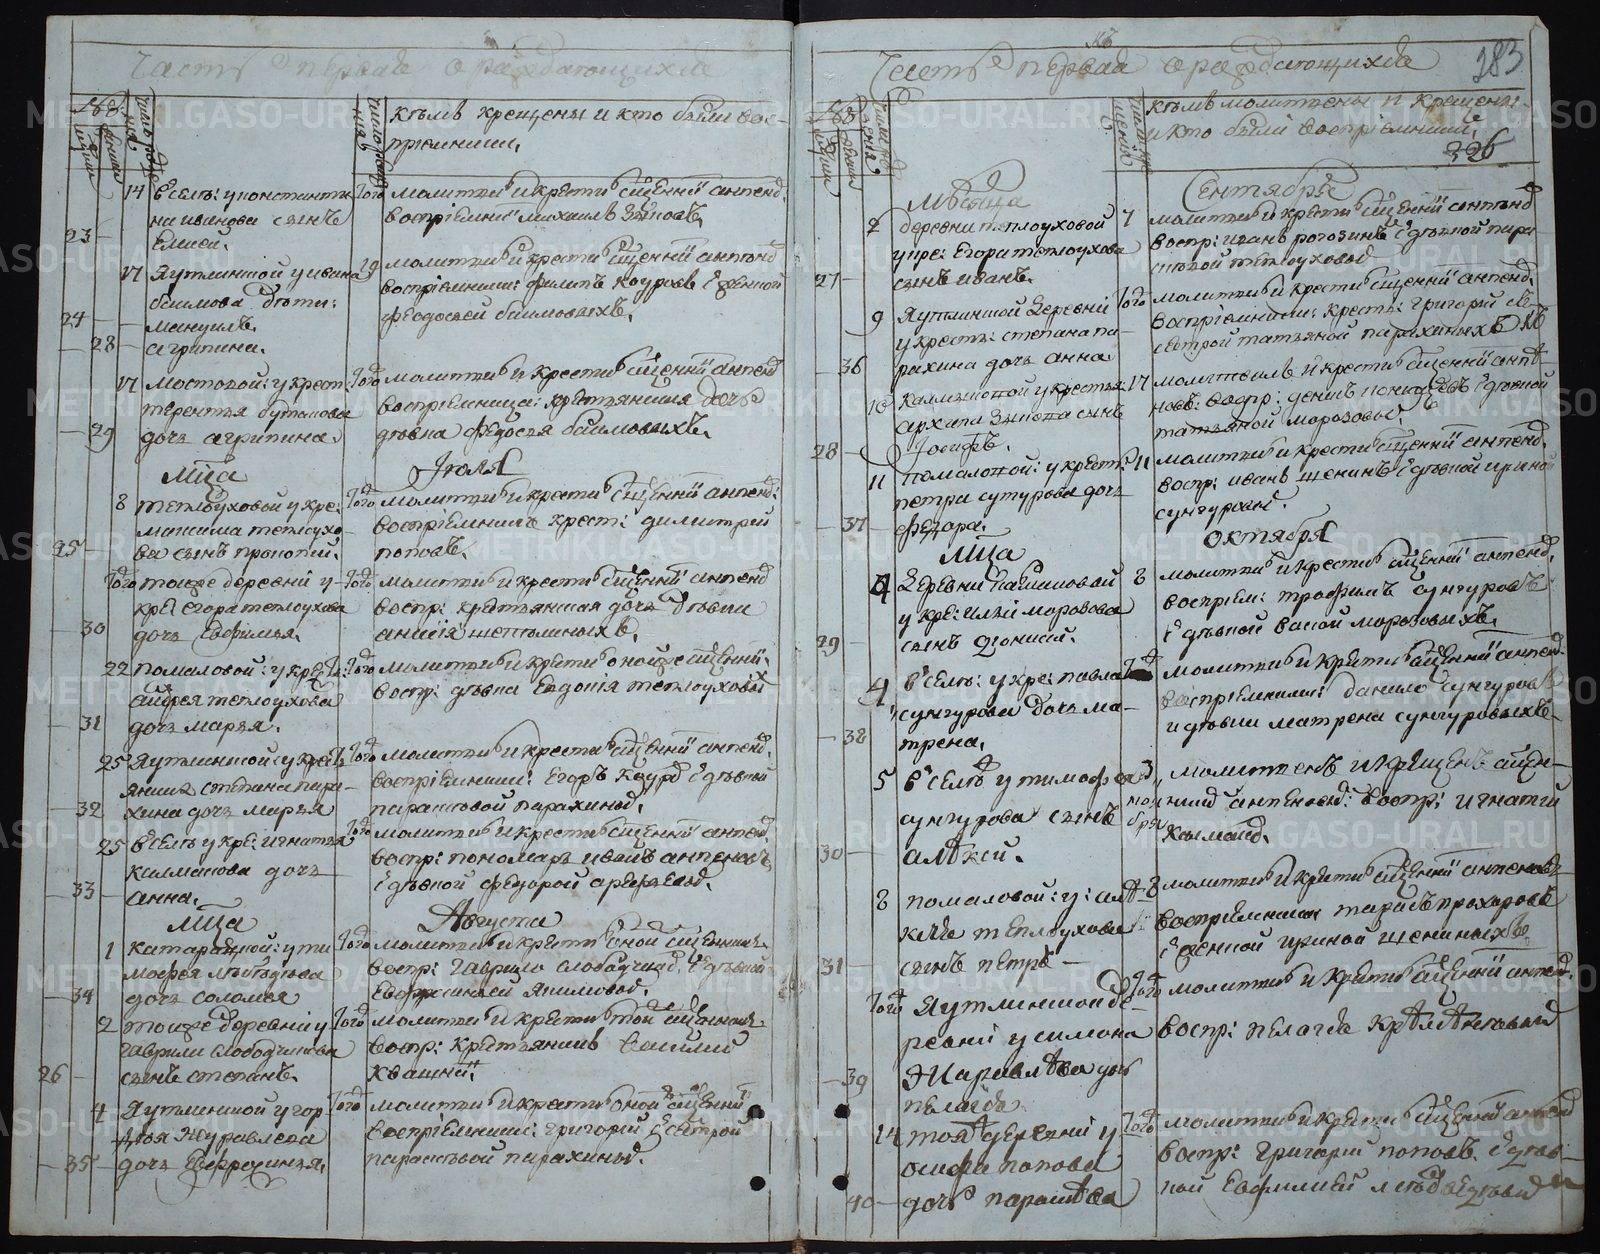 Часть первая о раждающихся
числорожде
ния
числокреще
ния
кѣмъ крещены и кто были вос-
прiемники,
14 Въ селѣ: у константи
на иванова сынъ
23
Елисей.
Того молитвилъ и крестилъ сщенникъ антенд.
воспрiемникъ михаилъ Зыковъ,
17 Яутлинской у ивана
баимова дѣти:
24
мануилъ.
28
агрипина.
19 молитвилъ и крестилъ сщенникъ антенд
воспрiемники: филипъ кауровъ с женой
феодосьей баимовыхъ.
17 мостовой: у крест.
терентья бутакова
29
дочь агрипина.
Того молитвилъ и крестилъ сщенникъ антенд
воспрiемница: крестьянская дочь
дѣвка федосья баимовыхъ.
Мца Iюля
8 теплоуховой у кре:
максима теплоухо-
25
ва сынъ прокопий.
Того молитвилъ и крестилъ сщенникъ антенд:
воспрiемникъ крест: димитрей
поповъ.
Того тоже деревни у
кре: егора теплоухова
30
дочь Евфимья.
Того молитвилъ и крестилъ сщенникъ антенд
воспр: крестьянская дочь дѣвки
22 помаловой: у крест:
андрея теплоухова
31
дочь марья.
Того молитвилъ и крестилъ оной же сщенникъ
воспр: дѣвка Евдокiя теплоуховых
25 Яутлинской: у кресть
янина степана пара-
32
хина дочь марья
Того молитвилъ и крестилъ сщенникъ антенд.
воспрiемники: Егоръ кауровъ с дѣвкой
парасковой парахиных.
25 въ селѣ у кре: игнатья
калмакова дочь
33
анна.
Того молитвилъ и крестилъ сщенникъ антенд.
воспр: пономарь иванъ антеновъ
с дѣвкой федорой арефьевой.
Мца Августа
1 катарацкой: у ти
мофея лебедева
34
дочь соломея
Того молитвилъ и крестилъ оной сщенникъ
воспр: гаврило слободчиковъ с дѣвкой
Евфросиньей Якимовой.
2 тоже деревни у
гаврила слободчикова
26
сынъ степанъ.
Того молитвилъ и крестилъ той сщенникъ
воспр: крестьянинъ василий
квашнин.
4 Яутлинской у гор
дѣя журавлева
35
дочь Евфросинья.
Того молитвилъ и крестилъ оной сщенникъ
воспрiемники: григорий с сестрой
парасковой парахиных.
283
Часть первая о раждающихся
кѣмъ молитвены и крещены
и кто были воспрiемники,
326
Мѣсяца Сентября
7 деревни теплоуховой
у кре: Егора теплоухова
27
сынъ иванъ.
7 молитвилъ и крестилъ сщенникъ антенд
воспр: иванъ рогозинъ с дѣвкой пара
сковой теплоуховой
9 Яутлинской деревни
у крестъ: степана па
36
рахина дочь анна
Того молитвилъ и крестилъ сщенникъ антенд.
воспрiемники: крестъ: григорий съ
сестрой татьяной парахиныхъ
10 калмацкой у крестья
архипа Зыкова сынъ
28
Iосифъ.
17 молитвилъ и крестилъ сщенникъ анте
новъ: воспр: денисъ с дѣвкой
татьяной морозовой
11 помаловой: у крест:
петра сунгурова дочь
37
федора.
11 молитвилъ и крестилъ сщенникъ антенд.
воспр: иванъ щенинъ с дѣвкой ириной
сунгуровы
Мца октября
4 деревни
у кре: ильи морозова
29
сынъ дiонисий.
8 молитвилъ и крестилъ сщенникъ антенд.
воспрiем: трофимъ сунгуровъ
с дѣвкой морозовыхъ.
4 въ селѣ: у кре: павла
сунгурова дочь ма-
38
трена.
Того молитвилъ и крестилъ сщенникъ антен
воспрiемники: данило сунгуровъ
и дѣвки матрена сунгуровыхъ
5 въ селѣ у тимофея
сунгурова сынъ
30
алѣксий.
молитвенъ и крещенъ сщен-
никомъ антеновымъ: воспр: игнатий
калмаковъ.
8 помаловой: у: алѣ
кс теплоухова
31
сынъ петръ
8 молитвилъ и крестилъ сщенникъ антеновъ
воспрiемникъ тарасъ прохоровъ
с женкой ириной щениныхъ
Того Яутлинской де
ревни у симона
39
журавлѣва дочь
пелагѣя
Того молитвилъ и крестилъ сщенникъ антенд.
воспр: пелагея
14 тоя деревни у
осипа попова
40
дочь парасковѣя
Того молитвилъ и крестилъ сщенникъ антенд
воспр: григорий поповъ. с дѣв-
кой Евфимией